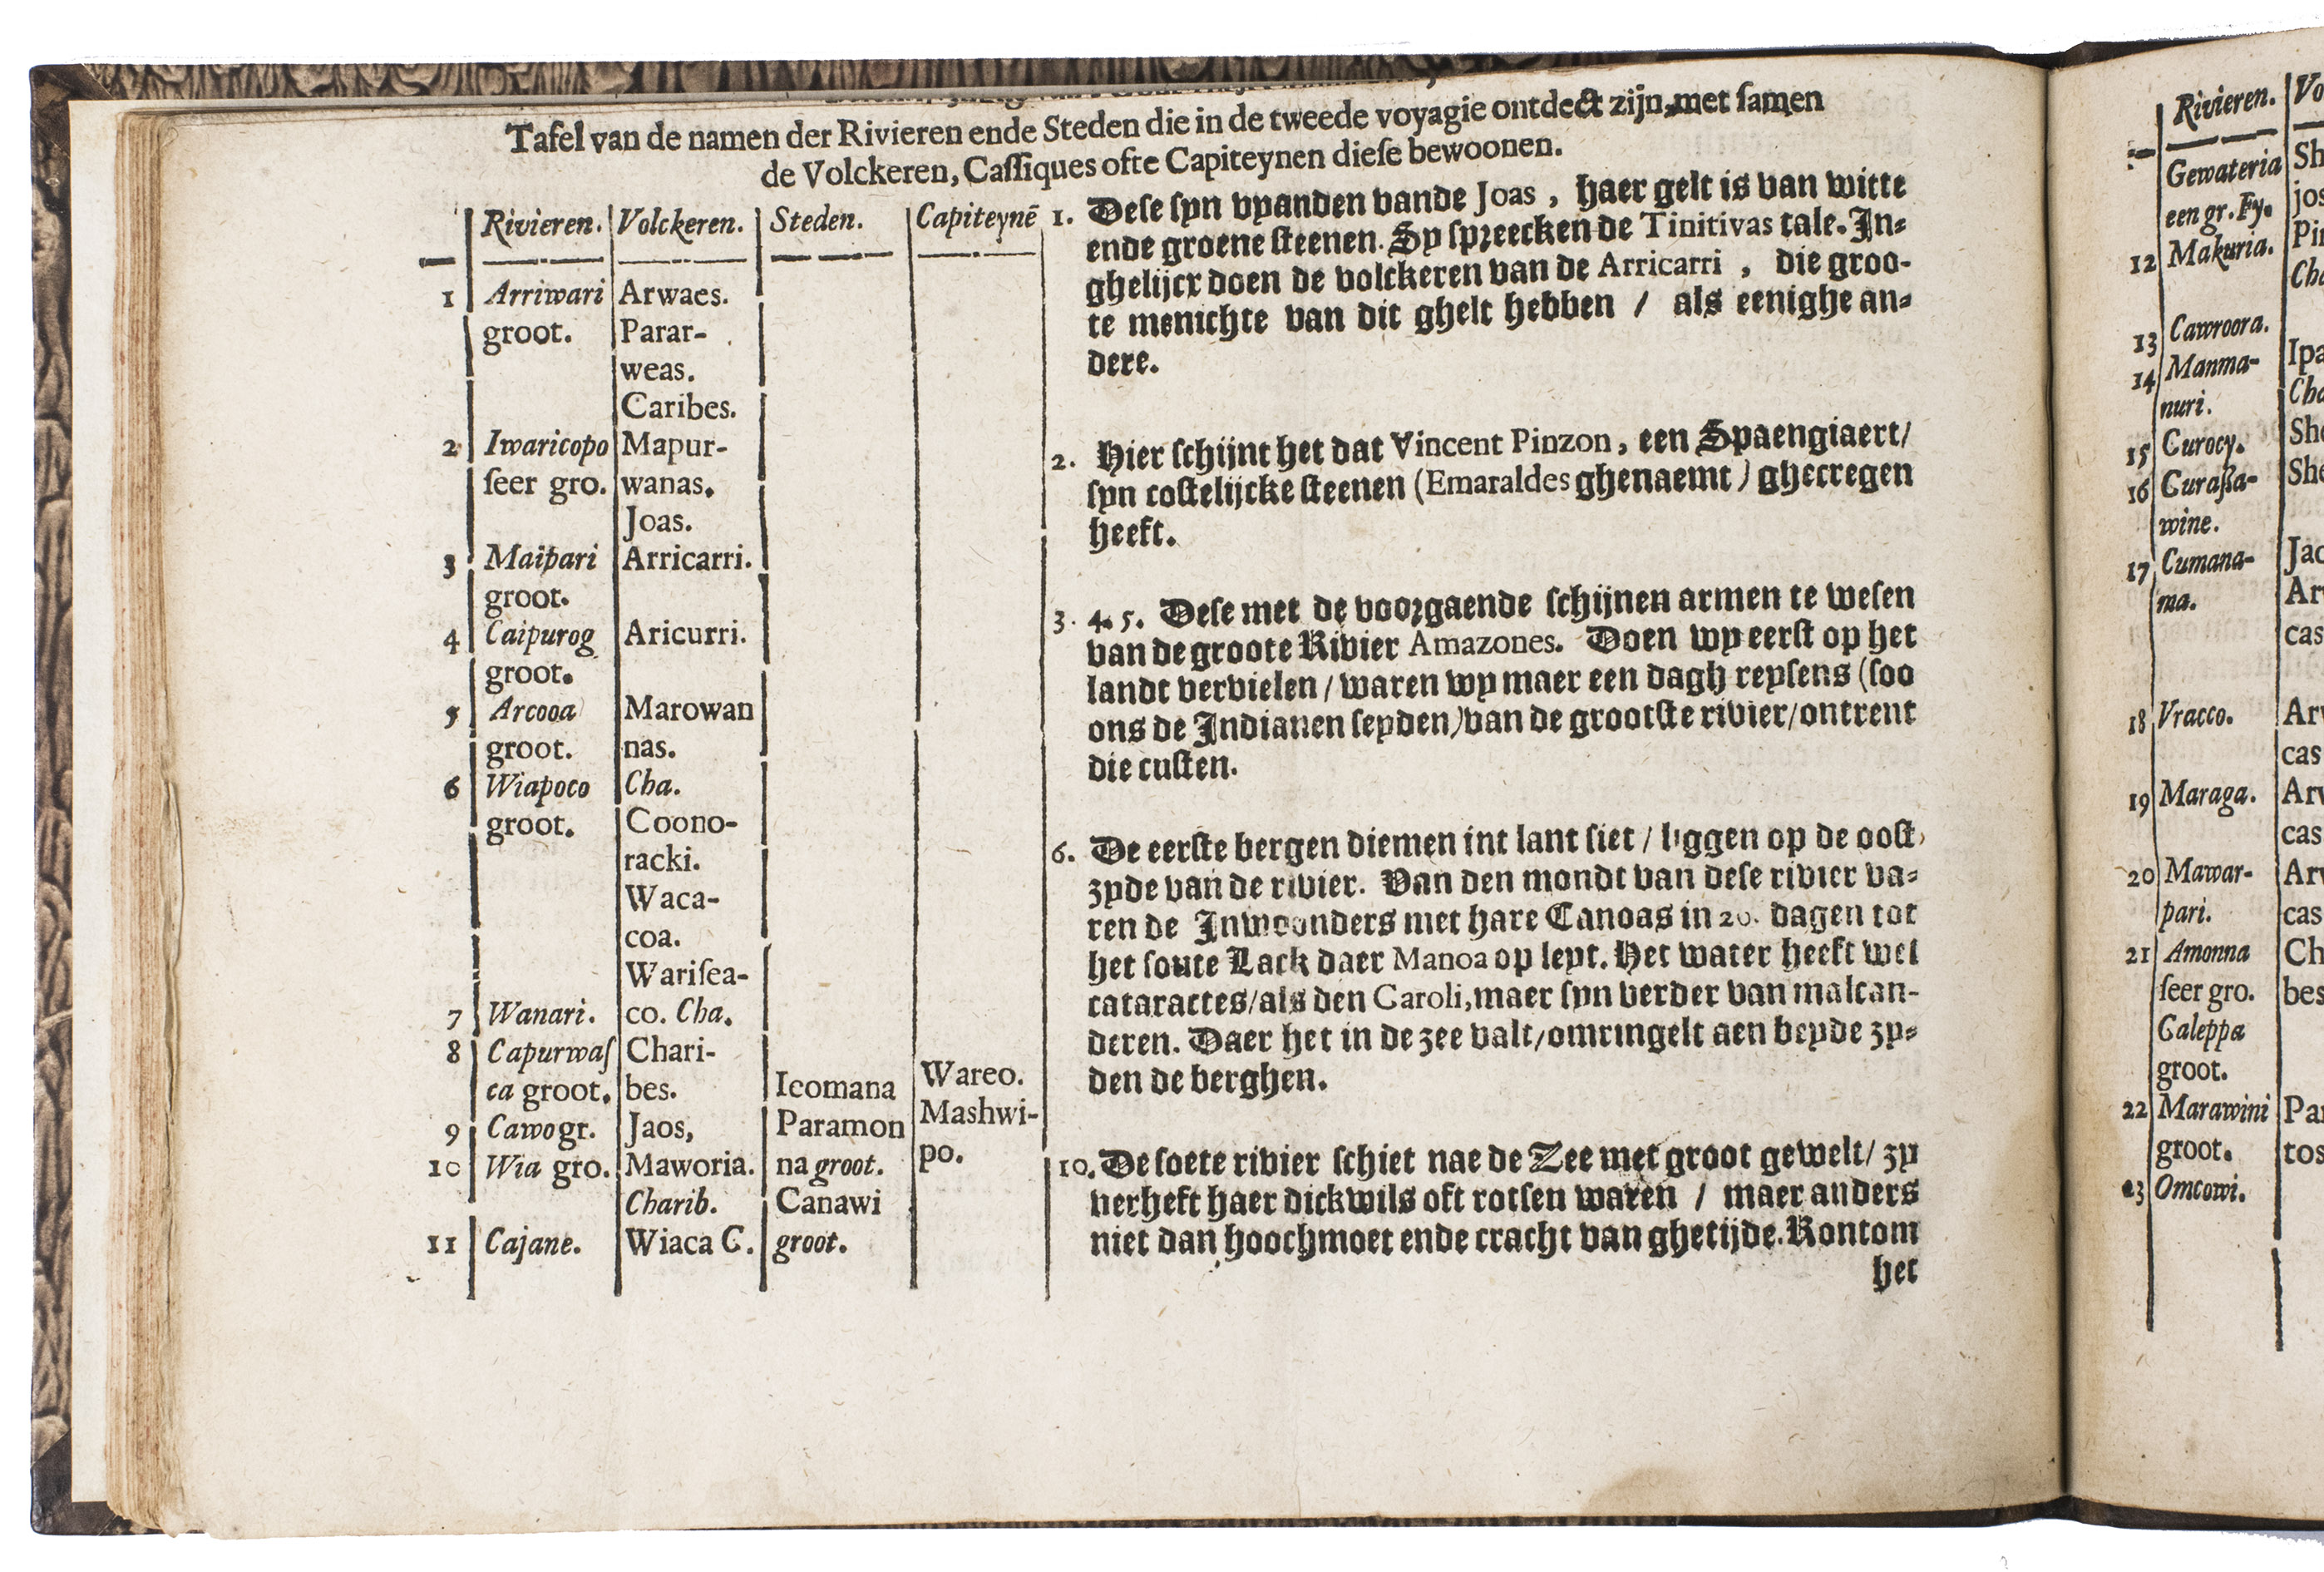 Tafel van de namen der Rivieren ende Steden die in de tweede voyagie ontdect zijn, met samen
de Volckeren, Cassiques ofte Capiteynen diese bewoonen.
Rivieren. Volckeren. Steden. Capiteynē
1 Arriwari Arwaes.
groot. Parar-
weas.
Caribes.
2 Iwaricopo Mapur-
seer gro. wanas.
Joas.
3 Maipari Arricarri.
groot.
4 Caipurog Aricurri.
groot.
5 Arcooa Marowan
groot. nas.
6 Wiapoco Cha.
groot. Coono-
racki.
Waca-
coa.
Warisea-
7 Wanari. co. Cha.
8 Capurwas Chari-
ca groot. bes. Icomana Wareo.
9 Cawo gr. Jaos, Paramon Mashwi-
10 Wia gro. Maworia. na groot. po.
Charib. Canawi
11 Cajane. Wiaca C. groot.
1. Dese syn vyanden vande Joas, haer gelt is van witte
ende groene steenen. Sy spreecken de Tinitivas tale. In-
ghelijcx doen de volckeren van de Arricarri, die groo-
te menichte van dit ghelt hebben / als eenighe an-
dere.
2. Hier schijnt het dat Vincent Pinzon, een Spaengiaert/
syn costelijcke steenen (Emaraldes ghenaemt) ghecregen
heeft.
3. 4. 5. Dese met de voorgaende schijnen armen te wesen
van de groote Rivier Amazones. Doen wy eerst op het
landt vervielen / waren wy maer een dagh reysens (soo
ons de Indianen seyden) van de grootste rivier/ontrent
die custen.
6. De eerste bergen diemen int lant siet / liggen op de oost
zyde van de rivier. Van den mondt van dese rivier va-
ren de Inwoonders met hare Canoas in 20. dagen tot
het soute Lack daer Manoa op leyt. Het water heeft wel
cataractes/als den Caroli, maer syn verder van malcan-
deren. Daer het in de zee valt/omringelt aen beyde zy-
den de berghen.
10. De soete rivier schiet nae de Zee met groot gewelt/ zy
verheft haer dickwils oft rotsen waren / maer anders
niet dan hoochmoet ende cracht van ghetijde. Rontom
het
Rivieren. Vo
Gewateria Sh
een gr. Fy. jos
12 Makuria. Pin
Cha
13 Cawroora.
14 Manma- Ipa
nuri. Cha
15 Curocy. She
16 Curassa- She
wine.
17 Cumana- Jao
ma. Arw
cas
18 Vracco. Arw
cas
19 Maraga. Arw
cas
20 Mawar- Arw
pari. cas
21 Amonna Ch
seer gro. bes
Galeppa
groot.
22 Marawini Par
groot. tos
23 Omcowi.